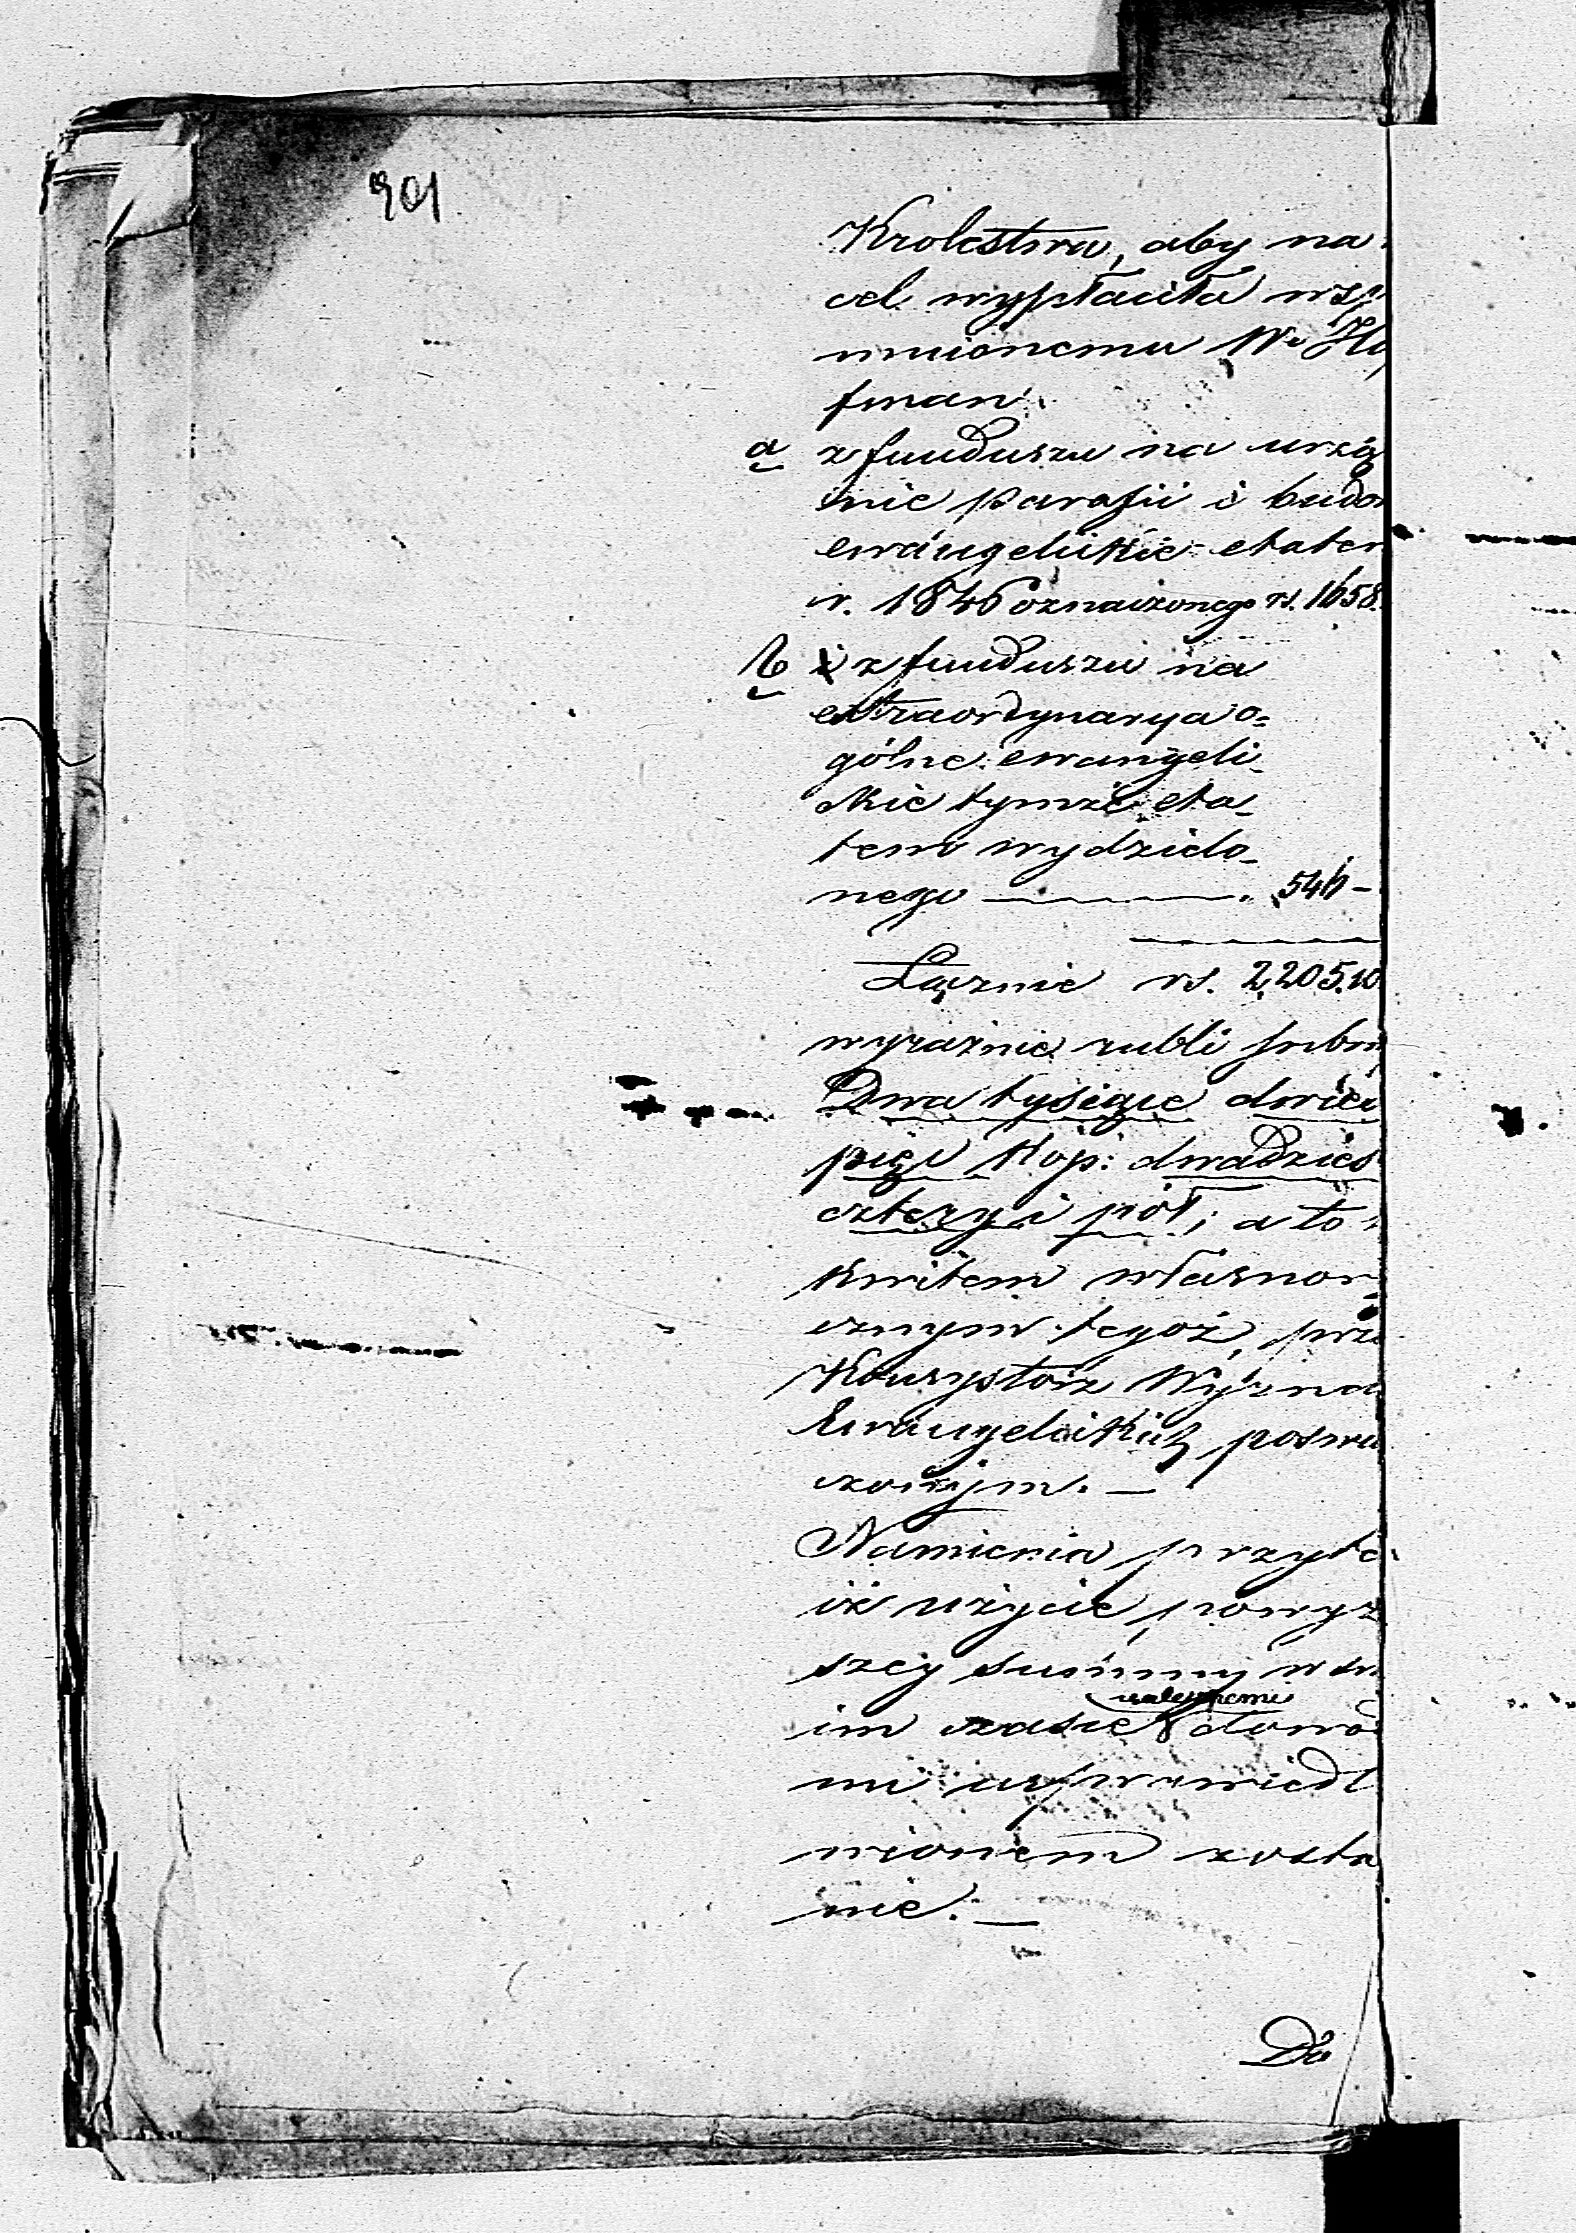 901
Krolestwa, aby na
cel wypłaciła wsp
mnionemu Wu Ho
fman.
a z funduszu na urzą
nie parafii i budo
ewangelickie etatem
r. 1846 oznaczonego rs. 1658.
b i z funduszu na
extraordynarya o=
gólne ewangeli_
ckie tymże eta_
tem wydzielo_
nego 546 –
Łącznie rs. 2,205.10
wyraźnie rubli srebr
Dwa tysiące dwieś
pięć kop: dwadzieś
cztery i pół; a to
kwitem własnorę
cznym tegoż, prze
Konsystorz Wyzna
Ewangelickich poświa
czonym. —
Namienia przytem
iż użycie powyż
szey summy w sw
im czasie należytemi dowo
mi usprawiedl
wionem zosta
nie. —
Do